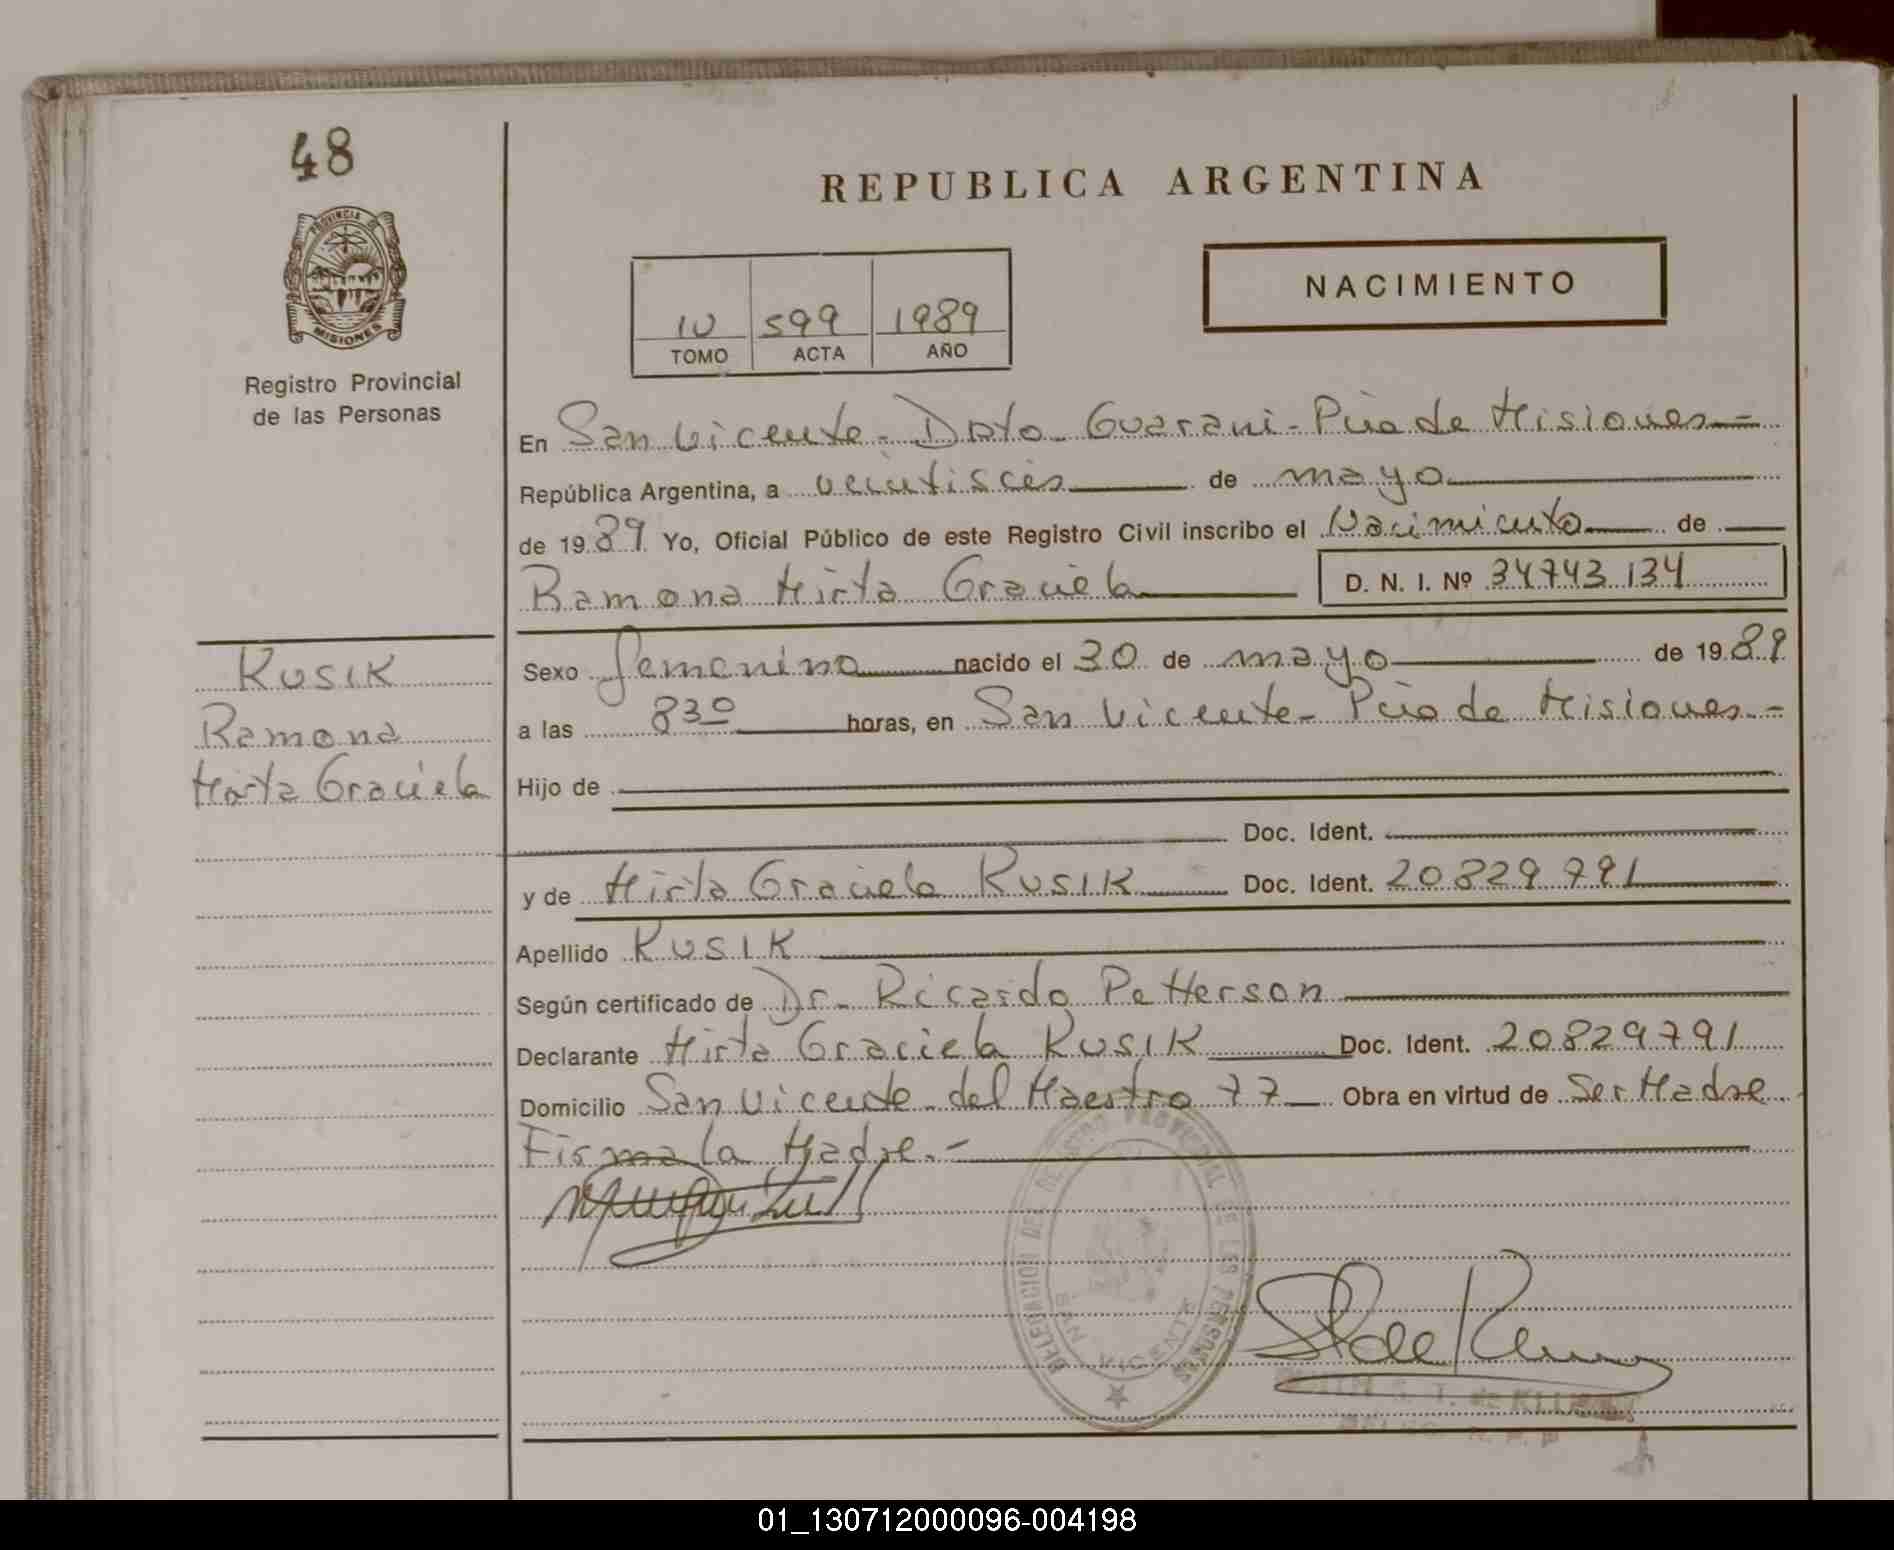 48
PROVINCIA DE
MISIONES
Registro Provincial
de las Personas
REPUBLICA ARGENTINA
NACIMIENTO
IV 599 1989
TOMO ACTA AÑO
En San Vicente - Dpto. Guarani - Pcia de Misiones -
República Argentina, a veintiseis de mayo
de 1989 Yo, Oficial Público de este Registro Civil inscribo el Nacimiento de
Ramona Mirta Graciela D. N. I. Nº 34743134
KUSIK
Ramona
Mirta Graciela
Sexo femenino nacido el 30 de mayo de 1989
a las 830 horas, en San Vicente - Pcia de Misiones -
Hijo de
Doc. Ident.
y de Mirta Graciela KUSIK Doc. Ident. 20829791
Apellido KUSIK
Según certificado de Dr. Ricardo Petterson
Declarante Mirta Graciela KUSIK Doc. Ident. 20829791
Domicilio San Vicente - del Maestro 77 Obra en virtud de Ser Madre
Firma la Madre. -
DELEGACION DEL REGISTRO PROVINCIAL DE LAS PERSONAS
SAN VICENTE
01_130712000096-004198